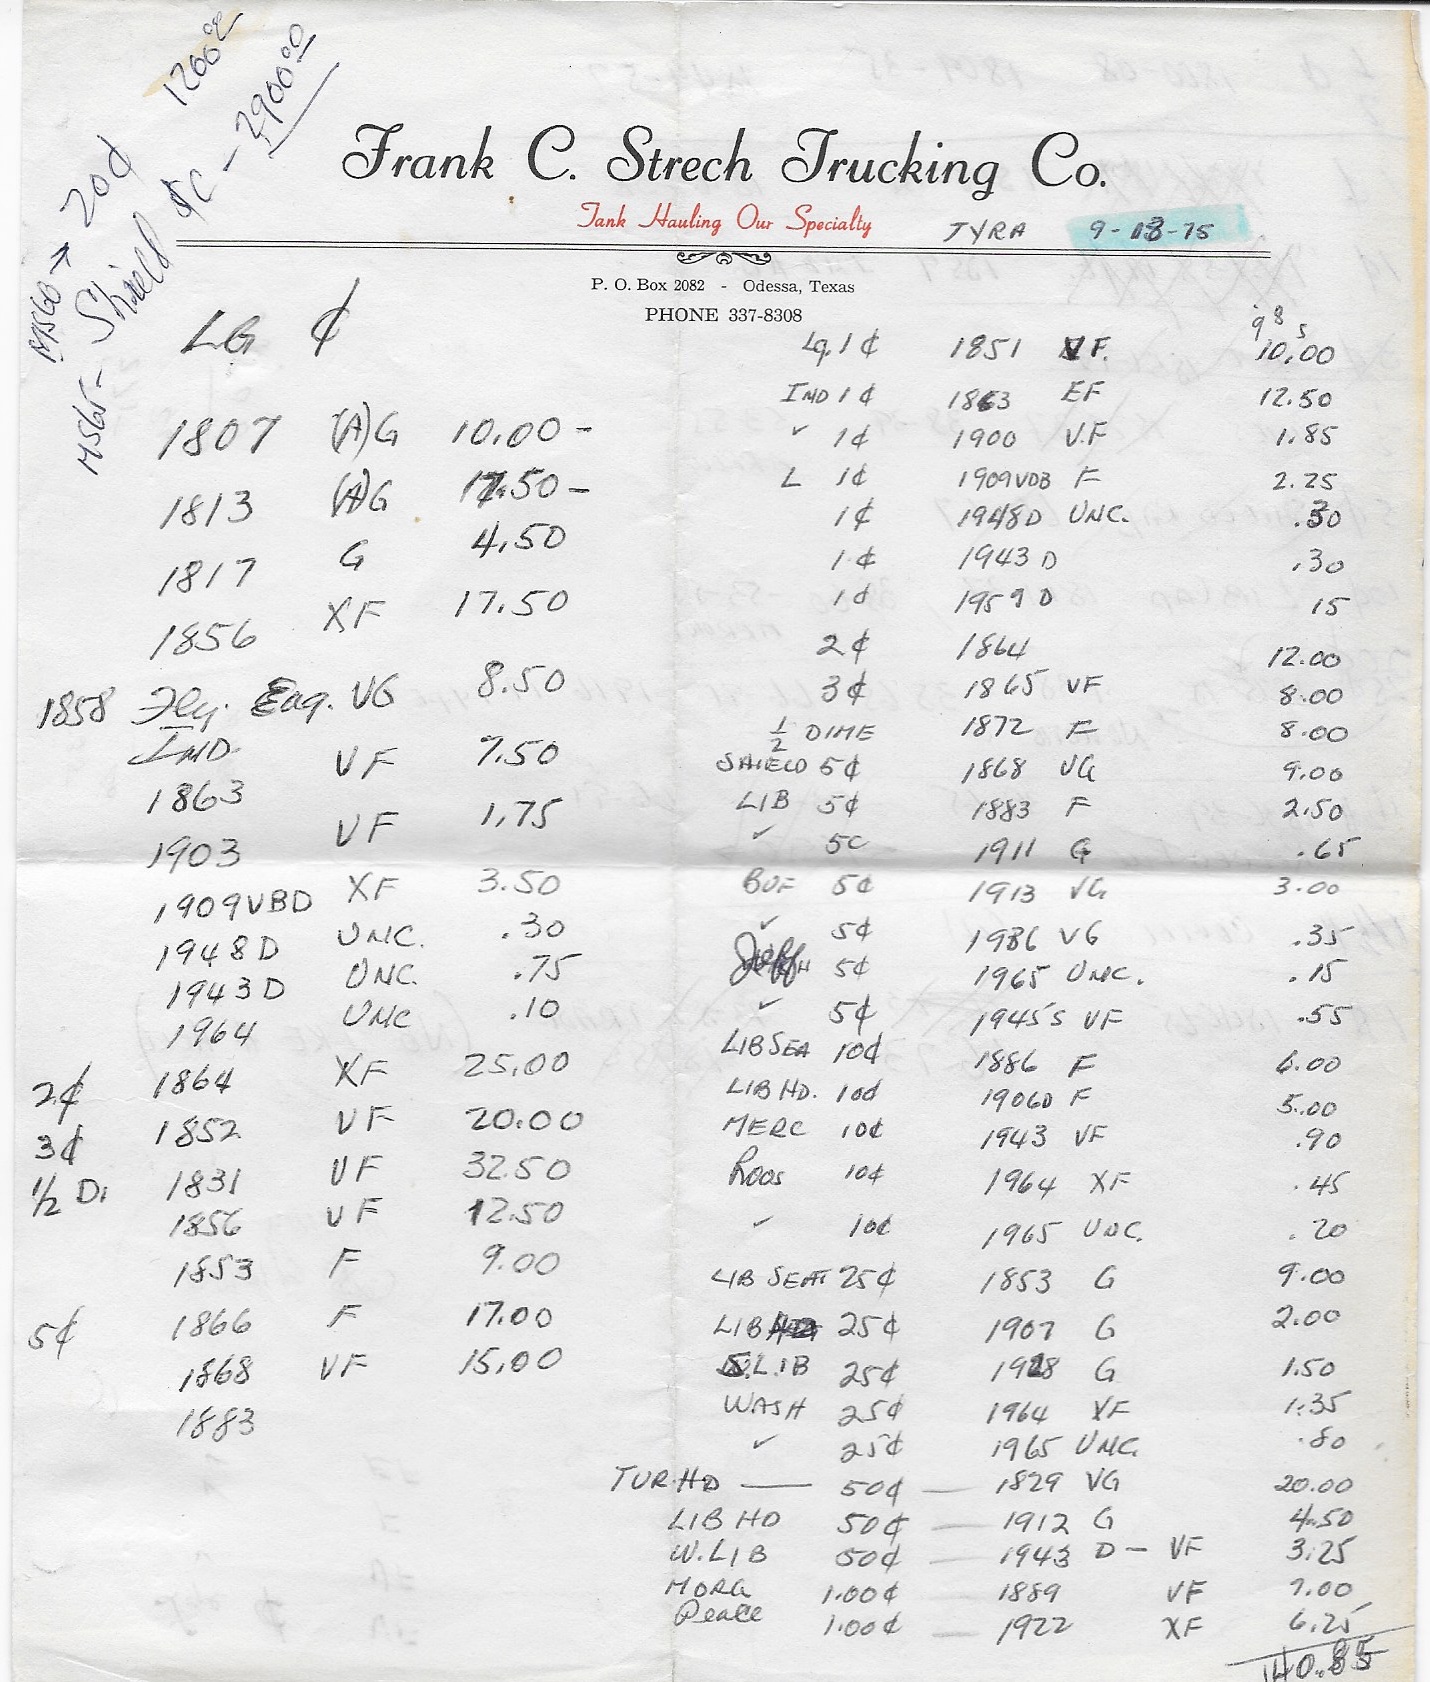 1200.00
MS60 → 20¢
MS65 - Shield 5C - 2900.00
Frank C. Strech Trucking Co.
Tank Hauling Our Specialty
TYRA 9-03-75
P. O. Box 2082 - Odessa, Texas
PHONE 337-8308
LG ¢
1807 (A)G 10.00 -
1813 (A)G 17.50 -
1817 G 4.50
1856 XF 17.50
1858 Fly. Eag. VG 8.50
IND
1863 VF 7.50
1903 VF 1.75
1909VBD XF 3.50
1948D UNC. .30
1943D UNC. .75
1964 UNC .10
2¢ 1864 XF 25.00
3¢ 1852 VF 20.00
1/2 Di 1831 VF 32.50
1856 VF 12.50
1853 F 9.00
5¢ 1866 F 17.00
1868 VF 15.00
1883
Lg. 1¢ 1851 VF. 10.00
IND 1¢ 1863 EF 12.50
✓ 1¢ 1900 V.F 1.85
L 1¢ 1909VDB F 2.25
1¢ 1948D UNC. .30
1¢ 1943D .30
1¢ 1959D 15
2¢ 1864 12.00
3¢ 1865 VF 8.00
1/2 DIME 1872 F 8.00
SHIELD 5¢ 1868 VG 9.00
LIB 5¢ 1883 F 2.50
✓ 5C 1911 G .65
BUF 5¢ 1913 VG 3.00
✓ 5¢ 1936 VG .35
Jeff 5¢ 1965 UNC. .15
✓ 5¢ 1945'S VF .55
LIB SEA 10¢ 1886 F 6.00
LIB HD. 10¢ 1906D F 5.00
MERC 10¢ 1943 VF .90
Roos 10¢ 1964 XF .45
✓ 10¢ 1965 UNC. .20
LIB SEAT 25¢ 1853 G 9.00
LIB 25¢ 1907 G 2.00
S.LIB 25¢ 1928 G 1.50
WASH 25¢ 1964 XF 1.35
✓ 25¢ 1965 UNC. .80
TUR.HD — 50¢ — 1829 VG 20.00
LIB HD 50¢ — 1912 G 4.50
W.LIB 50¢ — 1943 D - VF 3.25
MORG 1.00¢ — 1889 VF 7.00
Peace 1.00¢ — 1922 XF 6.25
140.85